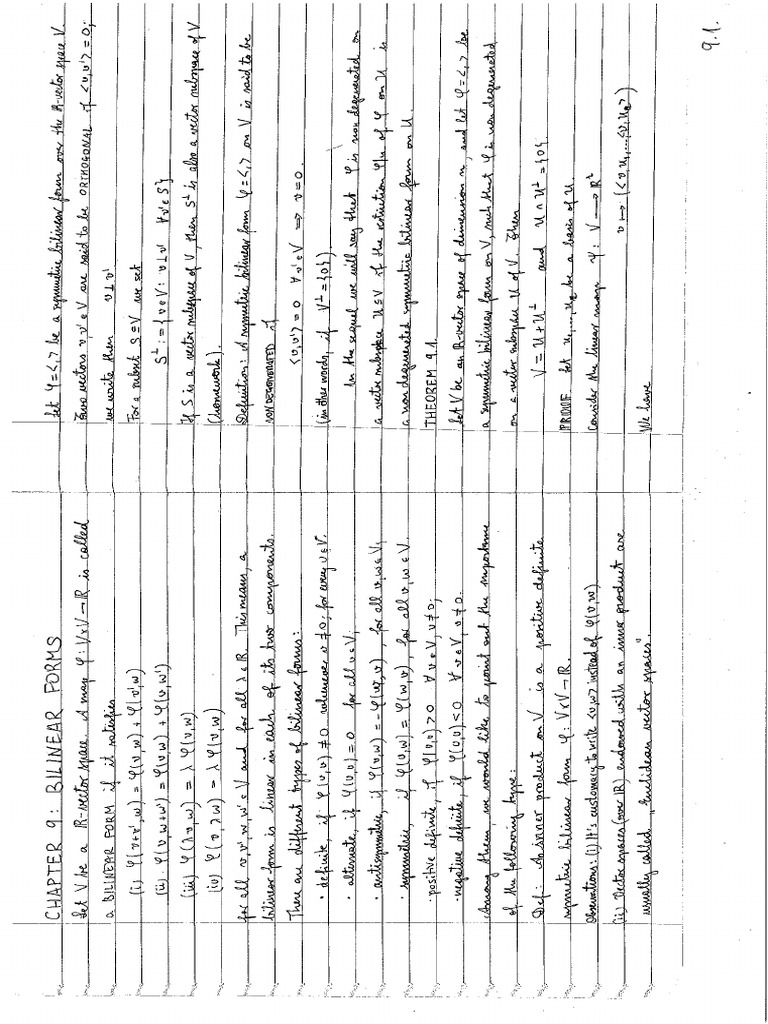 CHAPTER 9: BILINEAR FORMS
Let V be a ℝ-vector space. A map φ: V×V→ℝ is called
a BILINEAR FORM if it satisfies
(i) φ(v+v',w) = φ(v,w) + φ(v',w)
(ii) φ(v,w+w') = φ(v,w) + φ(v,w')
(iii) φ(λv,w) = λ φ(v,w)
(iv) φ(v,λw) = λ φ(v,w)
for all v,v',w,w' ∈ V and for all λ∈ℝ. This means, a
bilinear form is linear in each of its two components.
There are different types of bilinear forms:
· definite, if φ(v,v) ≠ 0 whenever v ≠ 0, for every v∈V.
· alternate, if φ(v,v) = 0 for all v∈V,
· antisymmetric, if φ(v,w) = -φ(w,v), for all v,w∈V,
· symmetric, if φ(v,w) = φ(w,v), for all v,w∈V.
· positive definite, if φ(v,v) > 0 ∀ v∈V, v≠0,
· negative definite, if φ(v,v) < 0 ∀ v∈V, v≠0.
Among them, we would like to point out the importance
of the following type:
Def.: An inner product on V is a positive definite
symmetric bilinear form φ: V×V→ℝ.
Observations: (i) It's customary to write <v,w> instead of φ(v,w)
(ii) Vector spaces (over ℝ) endowed with an inner product are
usually called "Euclidean vector spaces".
Let φ=<,> be a symmetric bilinear form over the ℝ-vector space V.
Two vectors v,v' ∈ V are said to be ORTHOGONAL if <v,v'> = 0;
we write then v⊥v'
For a subset S ⊆ V we set
S^⊥ := {v∈V: v⊥v' ∀v'∈S}
If S is a vector subspace of V, then S^⊥ is also a vector subspace of V
(homework).
Definition: A symmetric bilinear form φ=<,> on V is said to be
NON DEGENERATED if
<v,v'> = 0 ∀v'∈V ⟹ v = 0.
(in other words, if V^⊥ = {0})
In the sequel we will say that φ is non degenerated on
a vector subspace U ⊆ V if the restriction φ|U of φ on U is
a non degenerated symmetric bilinear form on U.
THEOREM 9.1
Let V be an ℝ-vector space of dimension n, and let φ=<,> be
a symmetric bilinear form on V, such that φ is non degenerated
on a vector subspace U of V. Then
V = U + U^⊥ and U ∩ U^⊥ = {0}.
PROOF Let u₁,...,u_r be a basis of U.
Consider the linear map ψ: V → ℝ^r
v ↦ (<v,u₁>,...,<v,u_r>)
We have
9.1.